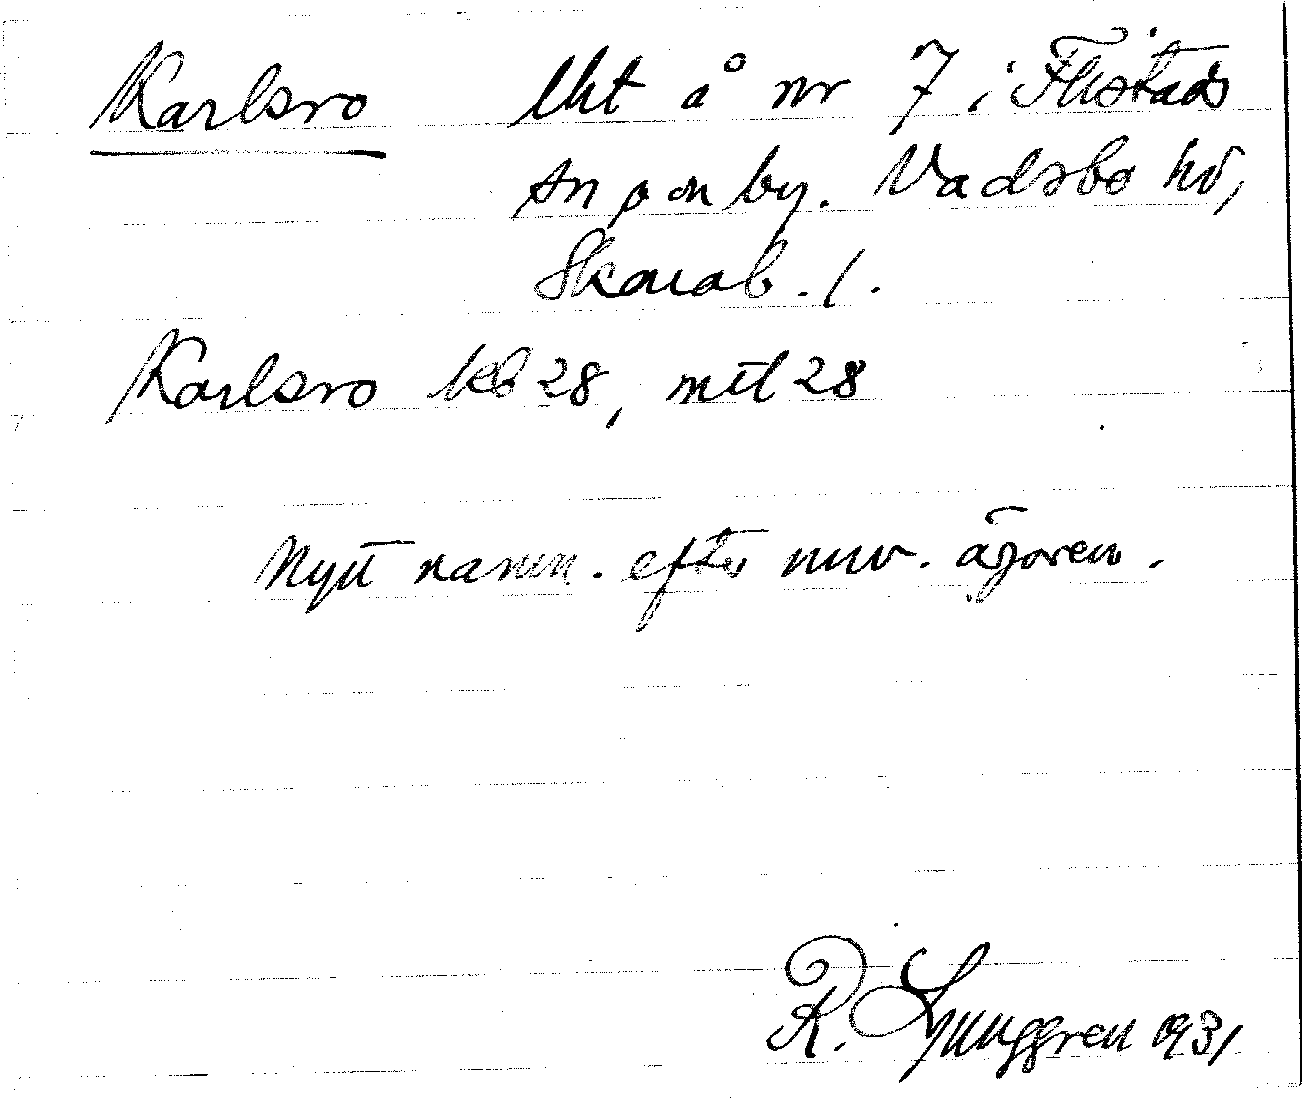 Karlsro lht å nr 7 i Flistads
sn o on by. Vadsbo hd,
Skarab. l.
Karlsro kb 28, mtl 28
Nytt namn. efter nuv. ägaren.
R. Ljunggren 1931